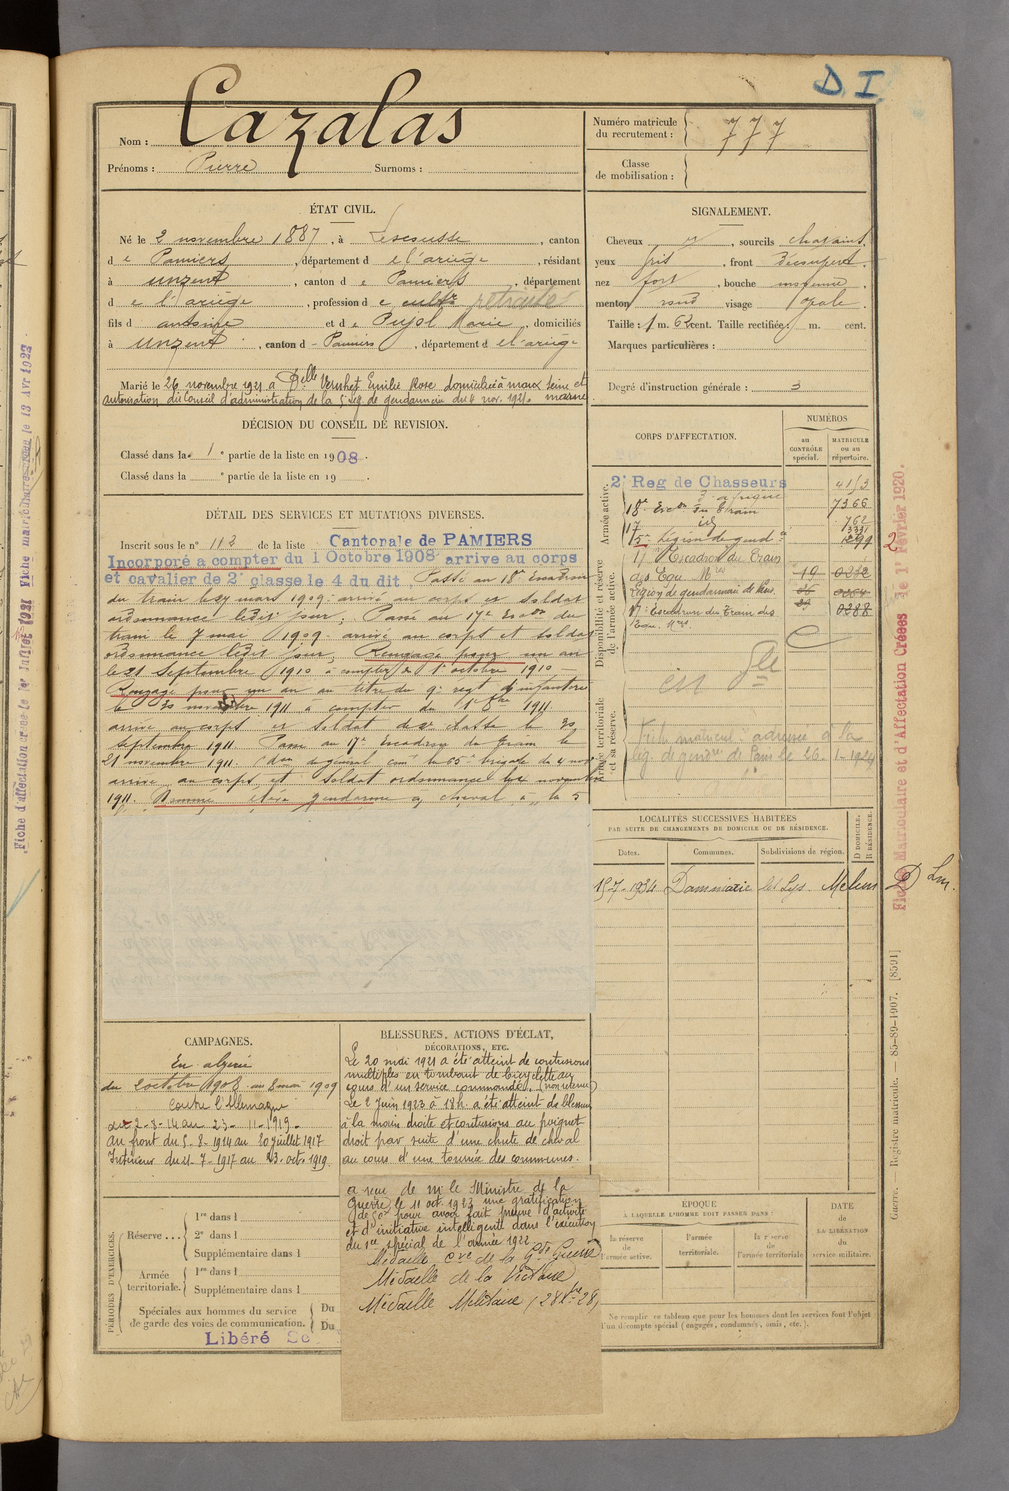 D. I
Nom : Cazalas
Prénoms : Pierre Surnoms :
Numéro matricule du recrutement : 777
Classe de mobilisation :
ÉTAT CIVIL.
Né le 2 novembre 1887, à Lescousse, canton
de Pamiers, département de l'ariège, résidant
à Unzent, canton de Pamiers, département
de l'ariège, profession de cultr retraité
fils d'antoine et de Pujol Marie, domiciliés
à Unzent, canton d Pamiers, département de l'ariège
Marié le 26 novembre 1921 à Delle Vernhet Emilie Rose domiciliée à meaux Seine et marne
autorisation du Conseil d'administration de la 5e Lég. de gendarmerie du 4 nov. 1921.
SIGNALEMENT.
Cheveux , sourcils chatains,
yeux gris, front découvert,
nez fort, bouche moyenne,
menton rond visage ovale.
Taille : 1 m. 62 cent. Taille rectifiée : m. cent.
Marques particulières :
Degré d'instruction générale : 3
DÉCISION DU CONSEIL DE REVISION.
Classé dans la 1e partie de la liste en 1908.
Classé dans la e partie de la liste en 19 .
DÉTAIL DES SERVICES ET MUTATIONS DIVERSES.
Inscrit sous le n° 112 de la liste Cantonale de PAMIERS
Incorporé à compter du 1 Octobre 1908 arrivé au corps
et cavalier de 2e classe le 4 du dit Passé au 18e Escadron
du train le 27 mars 1909. arrivé au corps et soldat
ordonnance ledit jour; Passé au 17e Escon du
train le 7 mai 1909. arrivé au corps et soldat
ordonnance ledit jour; Rengagé pour un an
le 21 Septembre 1910 à compter du 1er octobre 1910
Rengagé pour un an au titre du 9e regt d'infanterie
le 30 1911 à compter du 1er 8bre 1911.
arrivé au corps et Soldat de 2e classe le 30
septembre 1911. Passé au 17e Escadron du train le
21 novembre 1911. du général comt la 65e brigade du 4 nov
arrivé au corps et soldat ordonnance le novembre
1911. Nommé élève gendarme à cheval à la 5
CORPS D'AFFECTATION.
NUMÉROS
au CONTRÔLE spécial.
MATRICULE ou au répertoire.
Armée active.
2e Reg de Chasseurs 4153
d'afrique
18e Escon du Train 7366
17 id 762
15e Légion de gend.
Disponibilité et réserve de l'armée active.
17 Escadron du Train
des Equ. Mres 19 0272
Légion de gendarmerie de Paris
17e Escadron du Train des 0288
Equ. Mres
Armée territoriale et sa réserve.
Fiche matricul. adressée à la
Lég. de gendrie de Paris le 26-1-1924
LOCALITÉS SUCCESSIVES HABITÉES
PAR SUITE DE CHANGEMENTS DE DOMICILE OU DE RÉSIDENCE.
Dates. Communes. Subdivisions de région. D DOMICILE. R RÉSIDENCE.
15-7-1934 Dammarie les Lys Melun D
CAMPAGNES.
En algérie
du 2 octobre 1908 au 8 mai 1909
Contre l'Allemagne
du 2-8-14 au 23-11-1919.
au front du 5-8-1914 au 20 juillet 1917
Intérieur du 21-7-1917 au 23 oct. 1919.
BLESSURES, ACTIONS D'ÉCLAT,
DÉCORATIONS, ETC.
Le 20 mai 1921 a été atteint de contusions
multiples en tombant de bicyclette au
cours d'un service commandé, (non retenu)
Le 2 Juin 1923 à 18h. a été atteint de blessure
à la main droite et contusions au poignet
droit par suite d'une chute de cheval
au cours d'une tournée des communes.
a reçu de Mr le Ministre de la
Guerre le 11 oct. 1923 une gratification
de 50f pour avoir fait preuve d'activité
et d'initiative intelligente dans l'exécution
du sce spécial de l'année 1922
Médaille Cve de la Gde Guerre
Médaille de la Victoire
Médaille Militaire
PÉRIODES D'EXERCICES.
Réserve ...
1re dans l
2e dans l
Supplémentaire dans l
Armée territoriale.
1re dans l
Supplémentaire dans l
Spéciales aux hommes du service de garde des voies de communication.
Du
Du
Libéré
ÉPOQUE
À LAQUELLE L'HOMME DOIT PASSER DANS :
la réserve de l'armée active.
l'armée territoriale.
la réserve de l'armée territoriale
DATE de LA LIBÉRATION du service militaire.
Ne remplir ce tableau que pour les hommes dont les services font l'objet
d'un décompte spécial (engagés, condamnés, omis, etc.).
Fiche Matriculaire et d'Affectation Créées le 1er Février 1920.
Guerre. Registre matricule. — 85-89-1907. [8591]